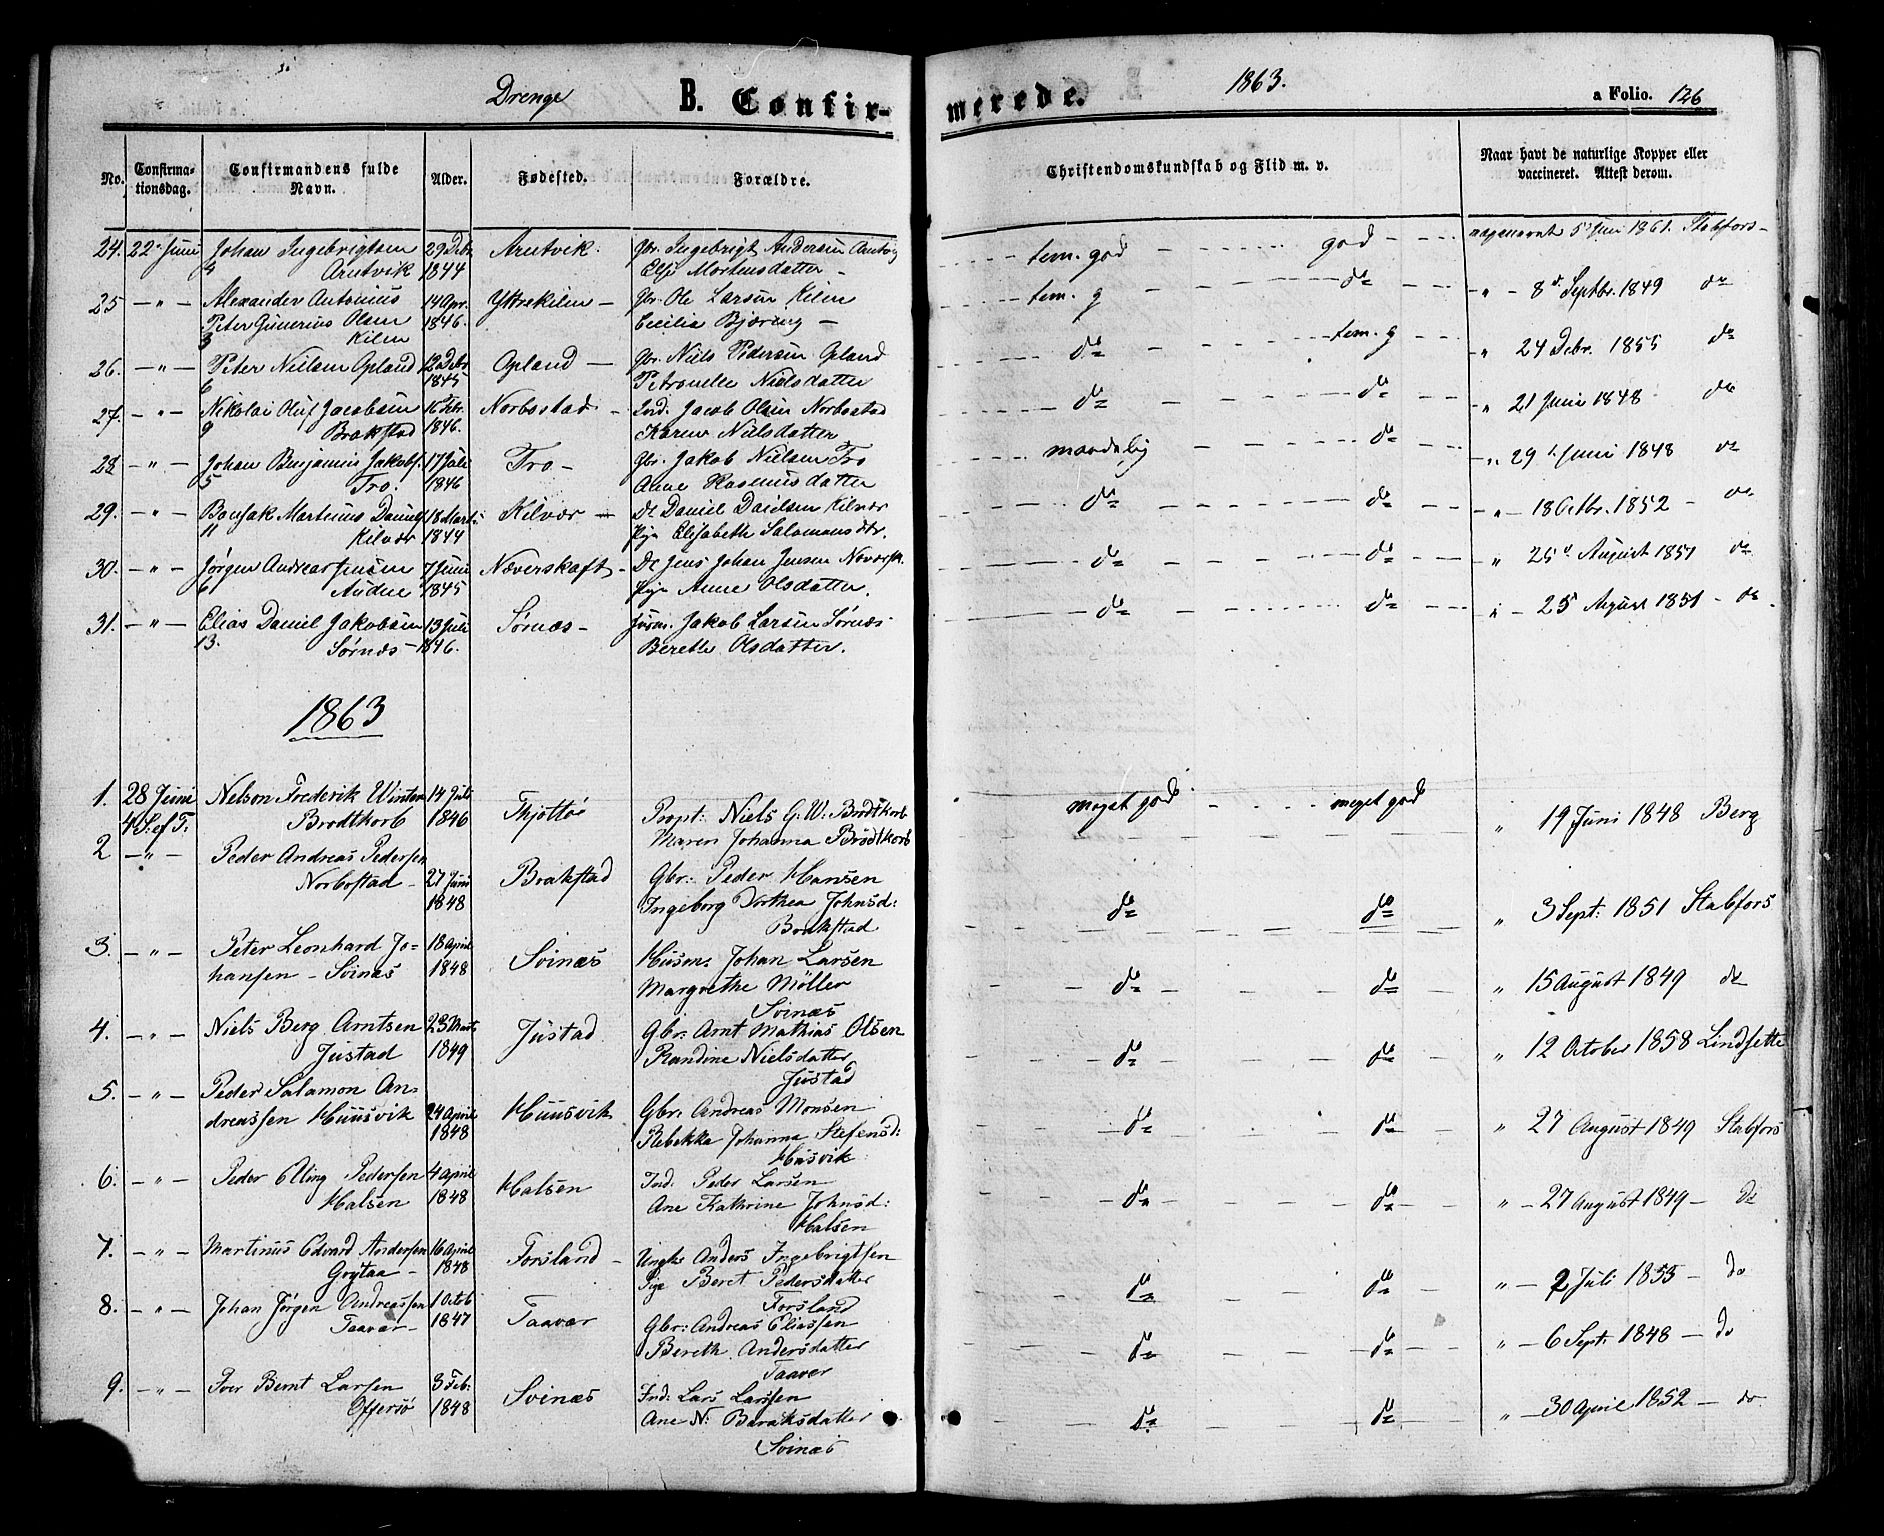 Drenge B. Confir-
merede. 1863. a Folio. 126
No. Confirma-tionsdag. Confirmandens fulde Navn. Alder. Fødested. Forældre. Christendomskundskab og Flid m. v. Naar havt de naturlige Kopper eller vaccineret. Attest derom.
24. 22 Juni Johan Ingebrigtsen 29 Debr Arntvik. Gbr. Ingebrigt Andersen Arntvig tem. god god 5 Juni 1861. Stabfors
4 Arntvik 1844 Else Mortensdatter
25 " Alexander Antonius 14 Apr. Yttrekilen Gbr. Ole Larsen Kilen tem. g do " 8d Septbr. 1849 do
Peter Gunerius Olsen 1846. Cecilia Bjæring
3 Kilen
26. " Peter Nielsen Opland 12 Debr Opland Gbr. Niels Pedersen Opland do tem. g " 24 Debr. 1855 do
6 1845 Petronelle Nielsdatter
27. " Nikolai Oluf Jacobsen 16 Febr. Norbostad Ind. Jacob Olsen Norbostad do do " 21 Juni 1848 do
9 Brakstad 1846. Karen Nielsdatter
28 " Johan Benjamin Jakobs. 17 Juli Tro Gbr. Jakob Nielsen Tro maadelig do " 29 Juni 1848 do
5 Tro. 1846 Anne Rasmusdatter
29. " Bonsak Martinus Daniels 18 Marts Kilvær Daniel Kilvær do do " 18 Octbr. 1852 do
11 Kilvær 1844 Elisabeth Salamonsdtr.
30. " Jørgen Andreas Jensen 7 Juni Næverskaft Jens Johan Jensen do do " 25d August 1851 do
6 1845 Anne Olsdatter.
31. " Elias Daniel Jakobsen 13 Juli Sørnæs Jakob Larsen Sørnæs do do " 25 August 1851 do
13. Sørnæs 1846. Berethe Olsdatter.
1863
1. 28 Juni Nelson Frederik Winter 14 Juli Thjøttø Propt: Niels G. W. Brodtkorb meget god meget god " 19 Juni 1848 Berg
4 S: ef T: Brodtkorb 1846 Maren Johanna Brodtkorb
2 " Peder Andreas Pedersen 27 Juni Brakstad Gbr: Peder Hansen do do " 3 Sept: 1851 Stabfors
Norbostad 1848 Ingeborg Dorthea Johnsd:
Brakstad
3. " Peter Leonhard Jo- 18 April Svinæs Husm. Johan Larsen do do " 15 August 1849 do
hansen Svinæs 1848 Margrethe Möller
Svinæs
4. " Niels Berg Arntsen 23 Marts Justad Gbr: Arnt Mathias Olsen do do " 12 October 1858 Lindsette
Justad 1849 Randine Nielsdatter
Justad
5. " Peder Salamon An- Gbr: Andreas Monsen
dreassen Huusvik 24 April Huusvik Rebekka Johanna Stefensd: do do " 27 August 1849 Stabfors
1848 Husvik
6. " Peder Elling Pedersen 4 April Halsen Ind. Peder Larsen do do " 27 August 1849 do
Halsen 1848 Ane Kathrine Johnsd:
Halsen
7. " Martinus Edvard Andersen 16 April Forsland Ungk: Anders Ingebrigtsen do do " 2 Juli 1853 do
Grytaa 1848 Pige Beret Pedersdatter
Forsland
8. " Johan Jørgen Andreassen 1 Octob Taavær Gbr: Andreas Eliassen do do " 6 Sept: 1848 do
Taavær 1847 Bereth Andersdatter
Taavær
9. " Iver Bernt Larsen 3 Feb: Svinæs Ind: Lars Larssen do do " 30 April 1852 do
Offersø 1848 Ane N: Baraksdatter
Svinæs